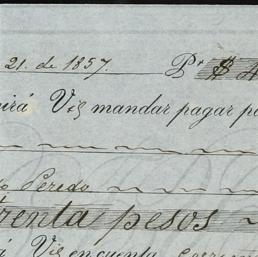 21. de 1857. Pr. $ 4
irá Vd mandar pagar po
do Peredo
renta pesos
á Vd en cuenta